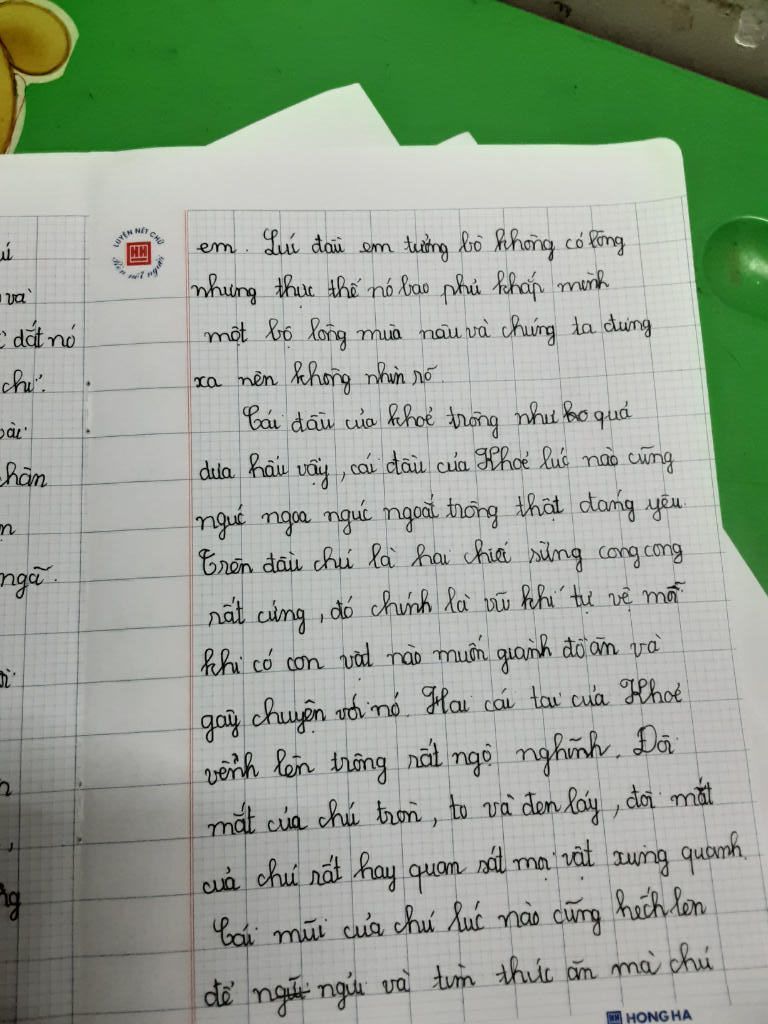 LUYỆN NÉT CHỮ
HH
Rèn nết người
em. Lúc đầu em tưởng bò không có lông
nhưng thực thế nó bao phủ khắp mình
một bộ lông màu nâu và chúng ta đứng
xa nên không nhìn rõ.
Cái đầu của khoẻ trông như quả
dưa hấu vậy, cái đầu của Khoẻ lúc nào cũng
ngúc ngoa ngúc ngoắt trông thật đáng yêu.
Trên đầu chú là hai chiếc sừng cong cong
rất cứng, đó chính là vũ khí tự vệ mỗi
khi có con vật nào muốn giành đồ ăn và
gây chuyện với nó. Hai cái tai của Khoẻ
vểnh lên trông rất ngộ nghĩnh. Đôi
mắt của chú tròn, to và đen láy, đôi mắt
của chú rất hay quan sát mọi vật xung quanh.
Cái mũi của chú lúc nào cũng hếch lên
để ngửi và tìm thức ăn mà chú
HH HONG HA
và
dắt nó
chú.
ngã.